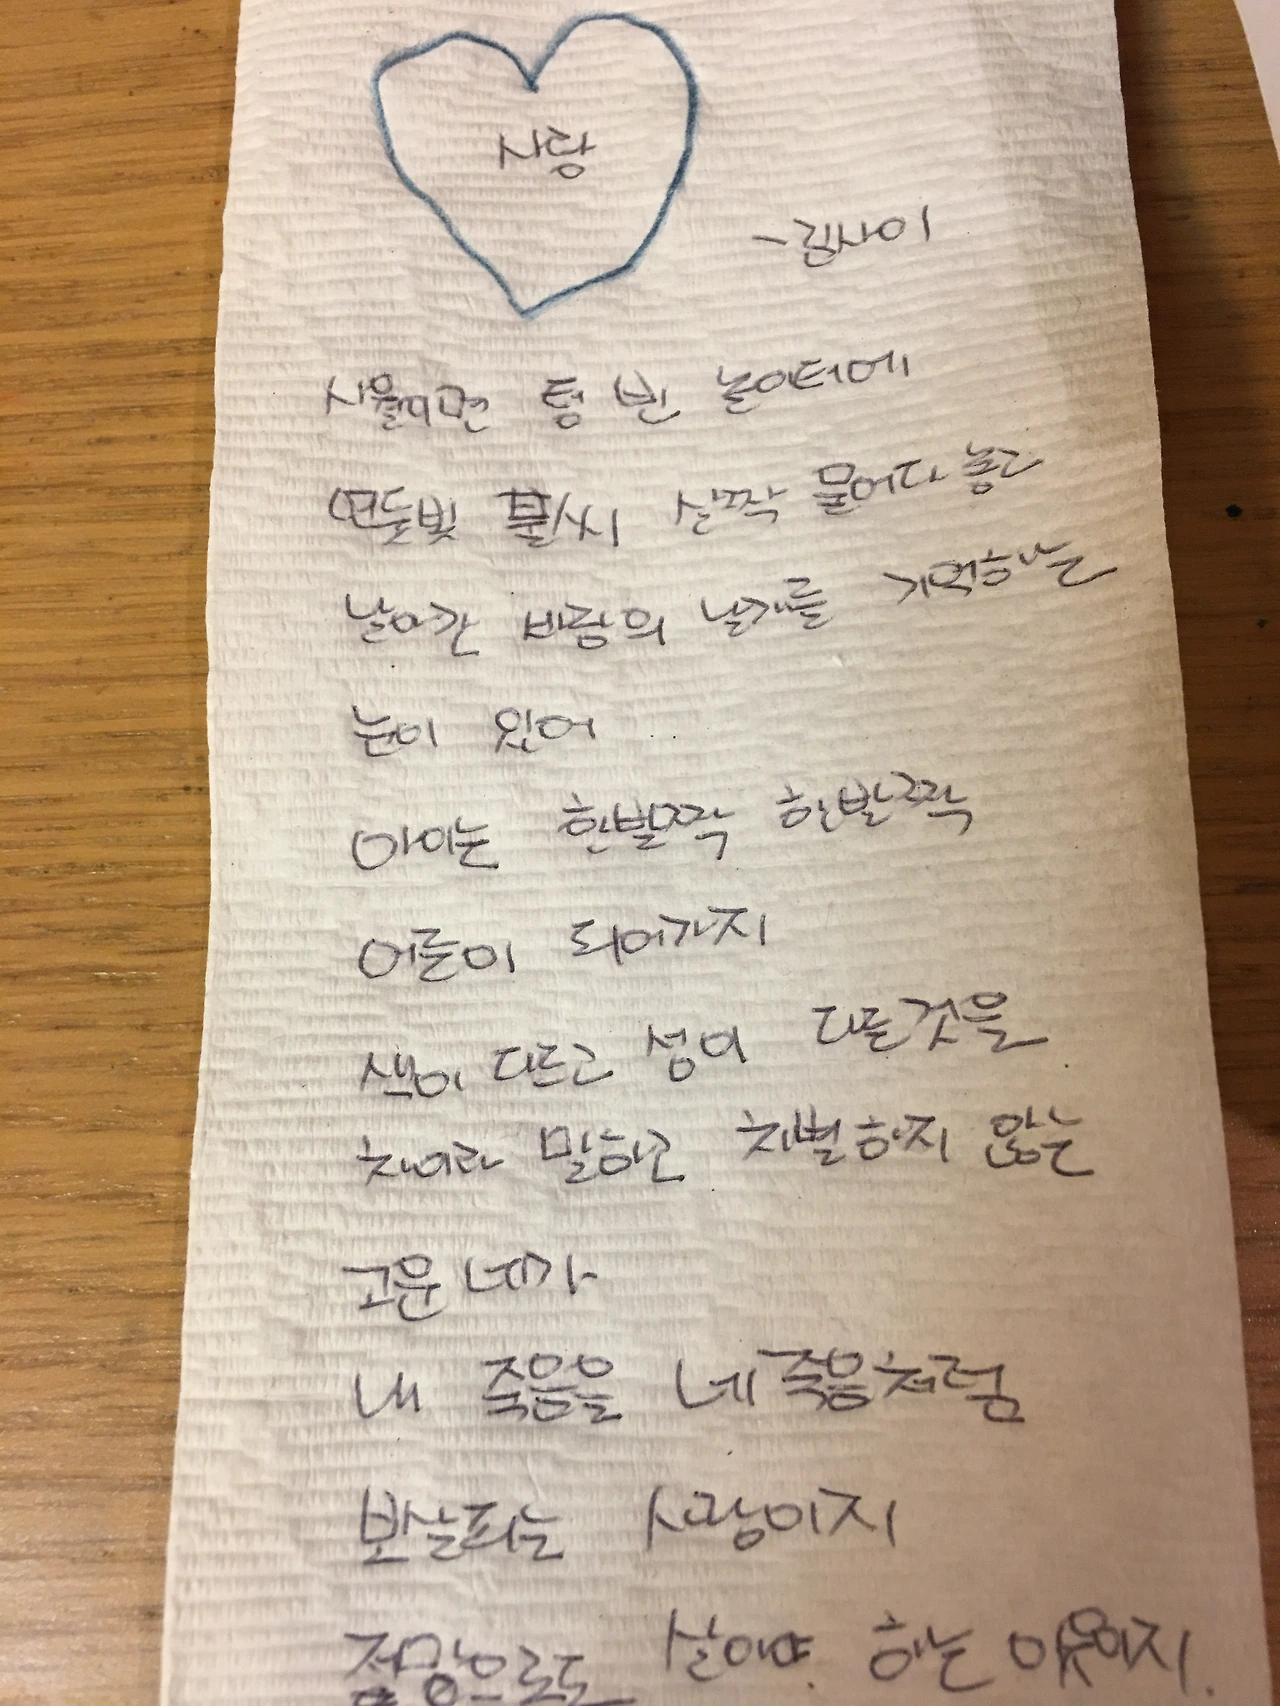 사랑
- 김사이
사월이면 텅 빈 놀이터에
연둣빛 불씨 살짝 물어다 놓고
날아간 바람의 날개를 기억하는
눈이 있어
아이는 한발짝 한발짝
어른이 되어가지
색이 다르고 성이 다른것을
차이라 말하고 차별하지 않는
고운 네가
내 죽음을 네 죽음처럼
보살피는 사랑이지
절망으로도 살아야 하는 이유이지.